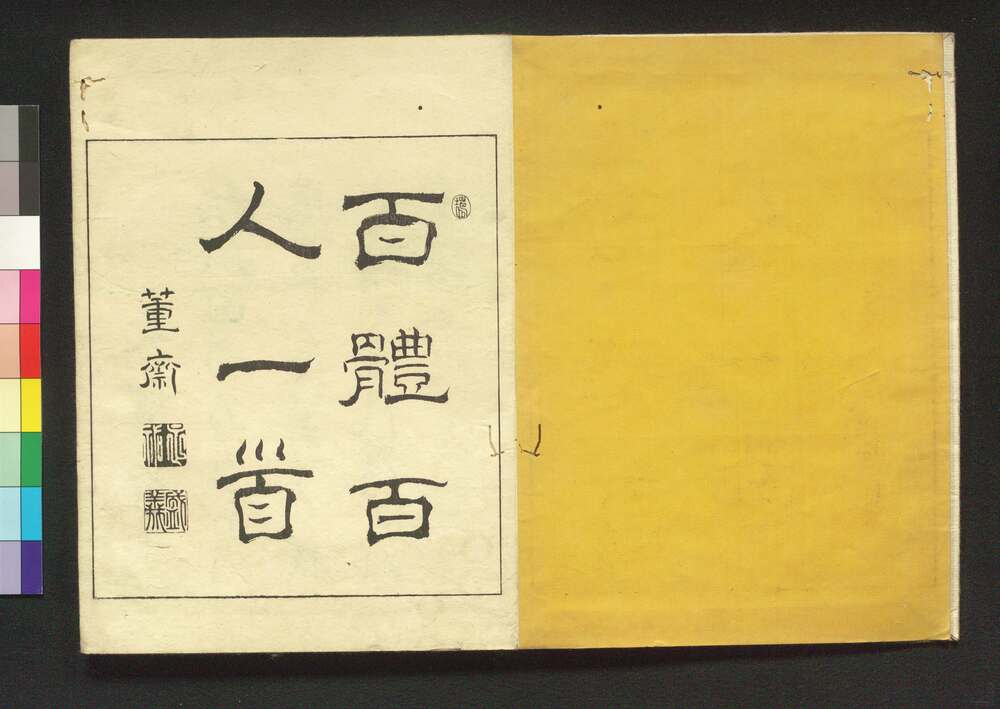 百體百
人一首
董齋